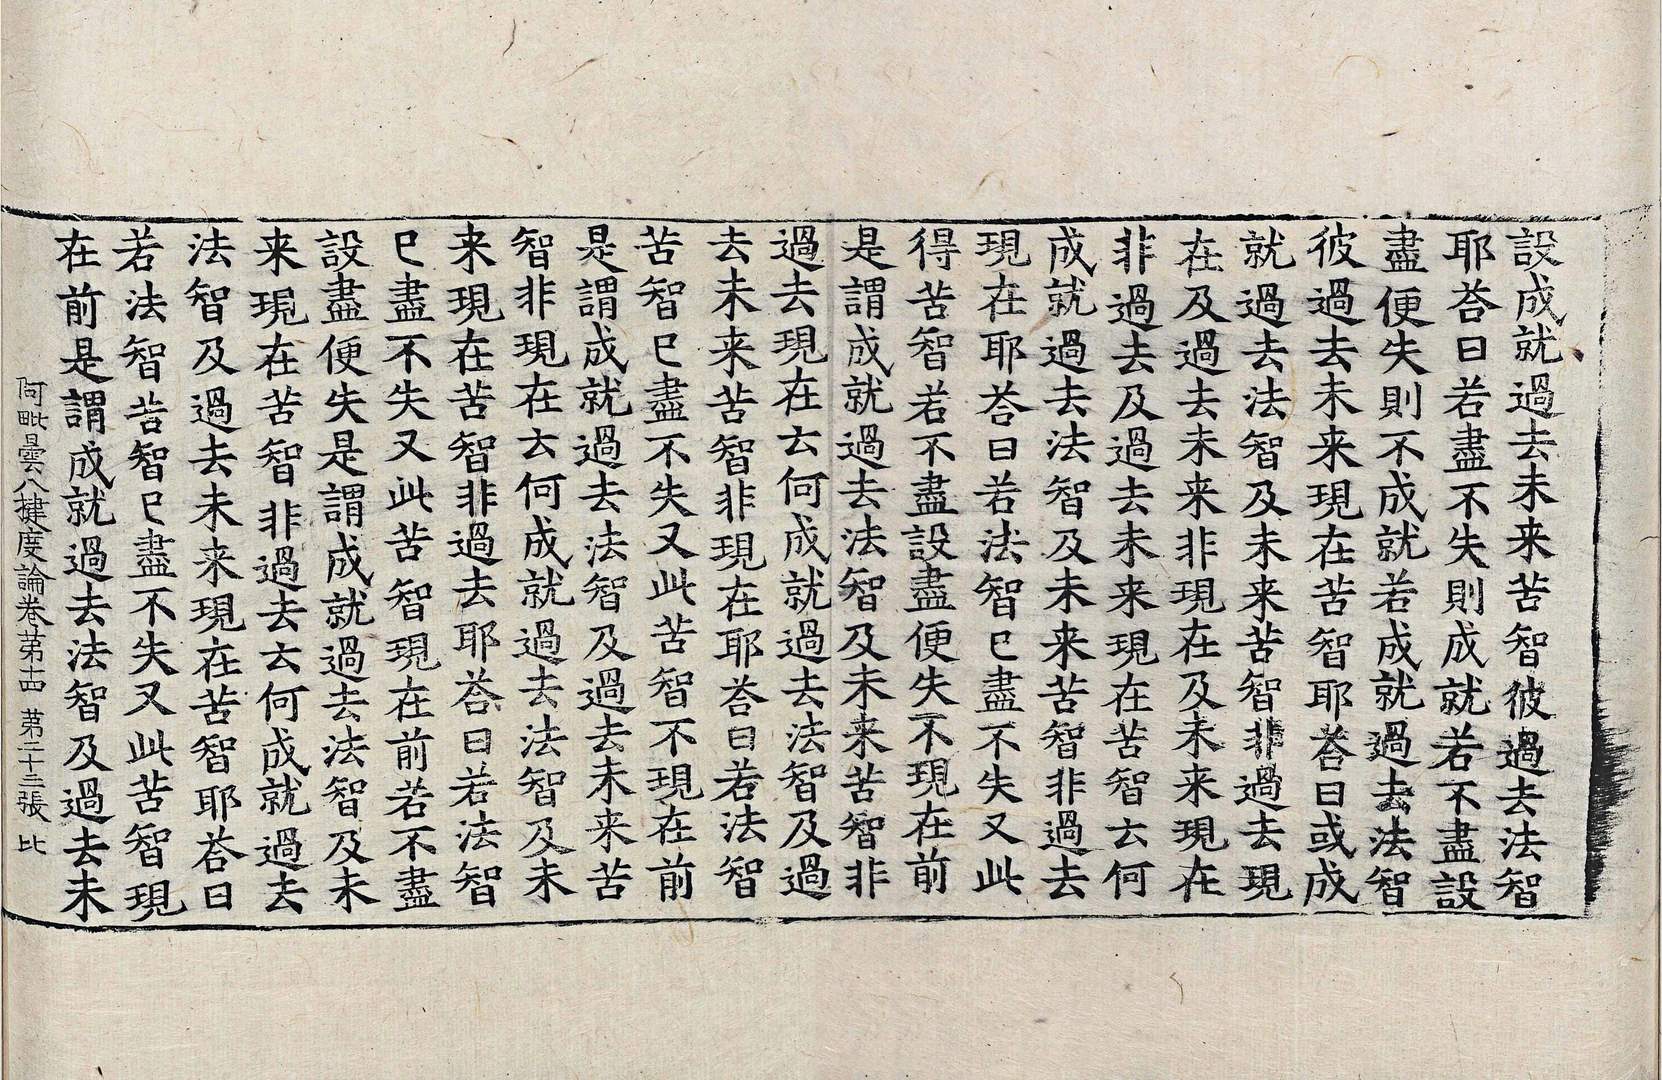 設成就過去未来苦智彼過去法智
耶荅曰若盡不失則成就若不盡設
盡便失則不成就若成就過去法智
彼過去未来現在苦智耶荅曰或成
就過去法智及未来苦智非過去現
在及過去未来非現在及未来現在
非過去及過去未来現在苦智云何
成就過去法智及未来苦智非過去
現在耶荅曰若法智已盡不失又此
得苦智若不盡設盡便失不現在前
是謂成就過去法智及未来苦智非
過去現在云何成就過去法智及過
去未来苦智非現在耶荅曰若法智
苦智已盡不失又此苦智不現在前
是謂成就過去法智及過去未来苦
智非現在云何成就過去法智及未
来現在苦智非過去耶荅曰若法智
已盡不失又此苦智現在前若不盡
設盡便失是謂成就過去法智及未
来現在苦智非過去云何成就過去
法智及過去未来現在苦智耶荅曰
若法智苦智已盡不失又此苦智現
在前是謂成就過去法智及過去未
阿毗曇八揵度論卷第十四 第二十三張 比